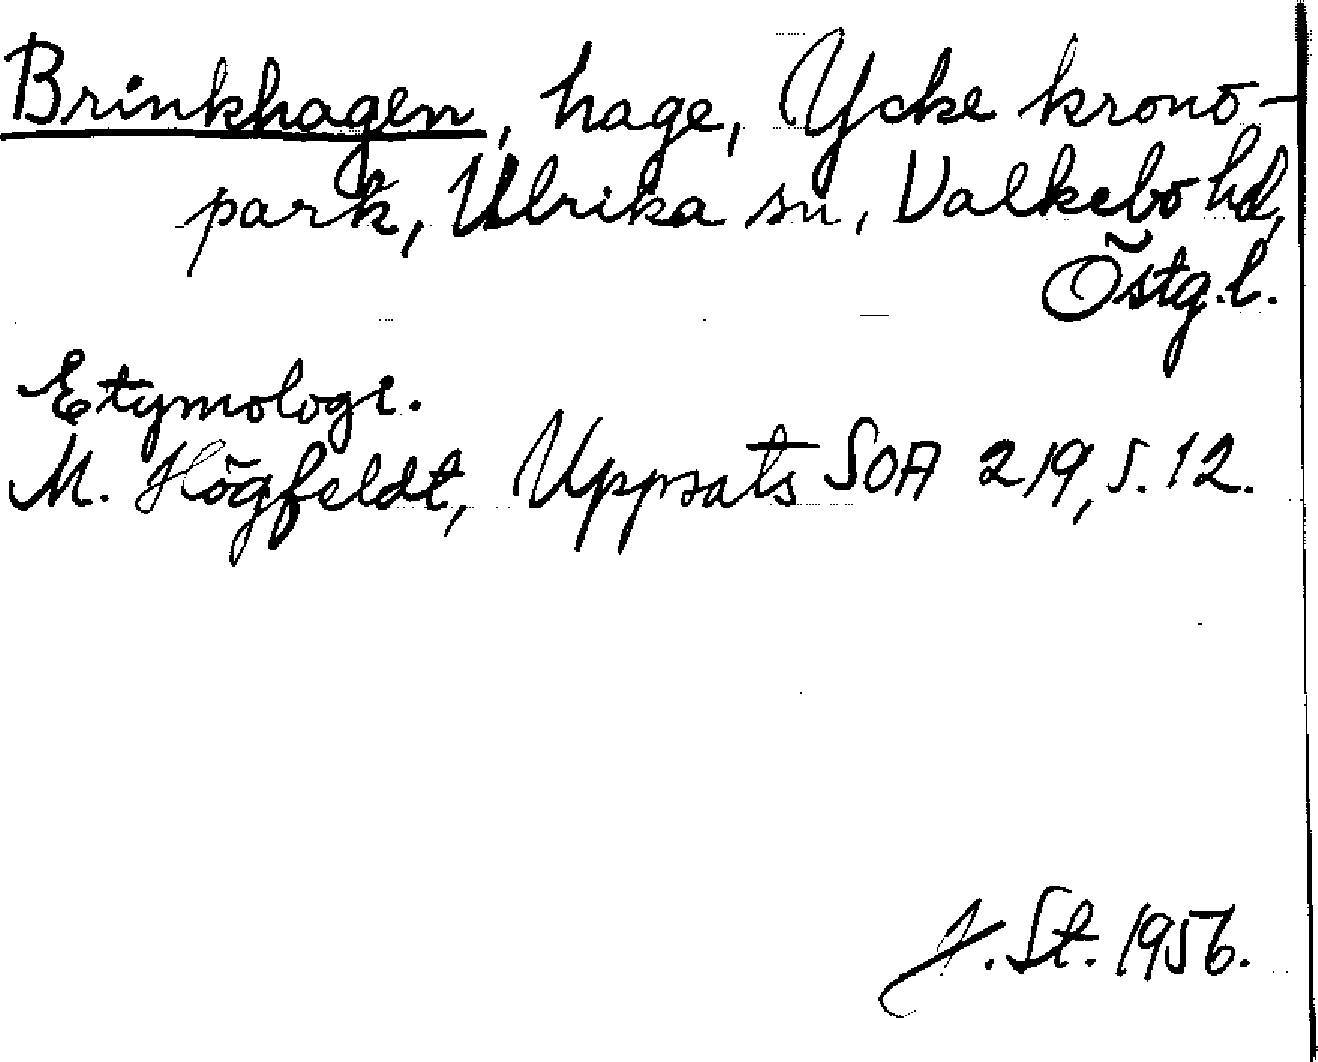 Brinkhagen, hage, Ycke krono-
park, Ulrika sn, Valkebo hd,
Östg.l.
Etymologi.
M. Högfeldt, Uppsats SOA 219, s. 12.
J. St. 1956.